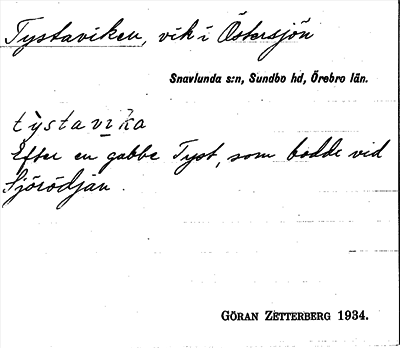 Tystaviken, vik i Östersjön
Snavlunda s:n, Sundbo hd, Örebro län.
ty̆stavi̱ka
Efter en gubbe Tyst, som bodde vid
Sjörödjan.
GÖRAN ZETTERBERG 1934.